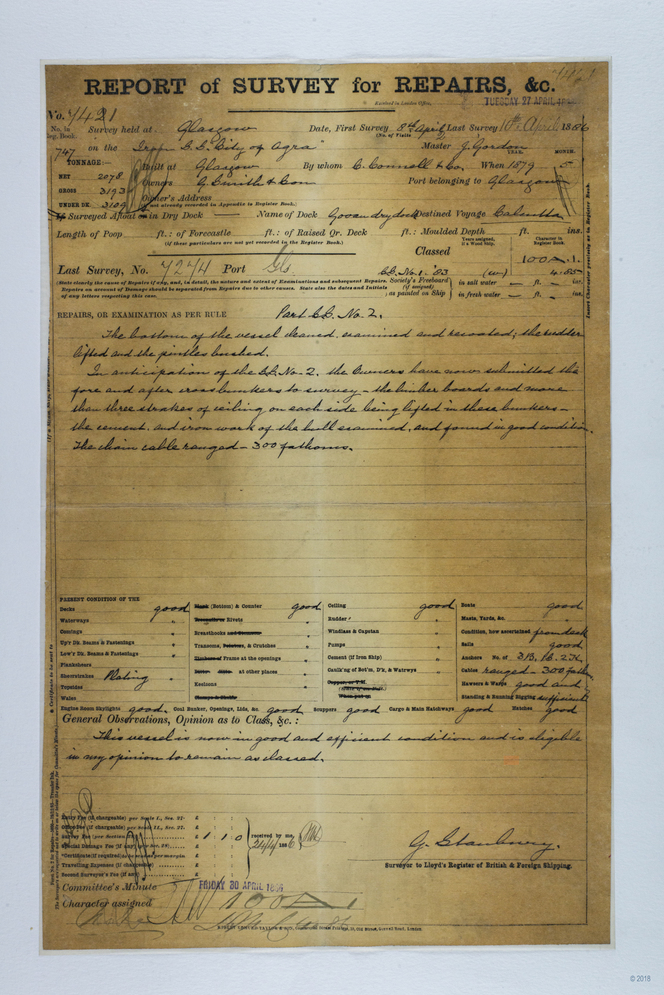 REPORT of SURVEY for REPAIRS, &c.
Received in London Office, TUESDAY 27 APRIL 1886
No. 7421
No. in Reg. Book. Survey held at Glasgow Date, First Survey 8th April Last Survey 10th April 1886
(No. of Visits
747 on the Iron S.S. "City of Agra" Master J. Gordon
TONNAGE:— Built at Glasgow By whom C. Connell & Co. When 1879 5
YEAR. MONTH.
NET 2078 Owners G. Smith & Son Port belonging to Glasgow
GROSS 3193 Owner's Address
UNDER DK. 3109 (if not already recorded in Appendix to Register Book.)
If Surveyed Afloat or in Dry Dock Name of Dock Govan dry dock Destined Voyage Calcutta
Length of Poop ft.: of Forecastle ft.: of Raised Qr. Deck ft.: Moulded Depth ft. ins.
(if these particulars are not yet recorded in the Register Book.)
Years assigned, if a Wood Ship. Character in Register Book.
Classed 100A.1.
Last Survey, No. 7274 Port Gls S.S. No. 1. '83 4.85
(State clearly the cause of Repairs if any, and, in detail, the nature and extent of Examinations and subsequent Repairs.
Repairs on account of Damage should be separated from Repairs due to other causes. State also the dates and Initials
of any letters respecting this case.
Society's Freeboard (if assigned) as painted on Ship in salt water ft. ins.
in fresh water ft. ins.
REPAIRS, OR EXAMINATION AS PER RULE Part S.S. No. 2.
The bottom of the vessel cleaned, examined and recoated; the rudder
lifted and the pintles bushed.
In anticipation of the S.S. No. 2, the Owners have now submitted the
fore and after cross bunkers to survey - the limber boards and more
than three strakes of ceiling on each side being lifted in these bunkers -
the cement, and iron work of the hull examined, and found in good condition.
The chain cable ranged - 300 fathoms.
PRESENT CONDITION OF THE
Decks good
Waterways "
Comings "
Up'r Dk. Beams & Fastenings "
Low'r Dk. Beams & Fastenings "
Planksheers
Sheerstrakes Plating "
Topsides
Wales
Plank (Bottom) & Counter good
Treenails or Rivets "
Breasthooks and Crutches "
Transoms, Pointers, & Crutches "
Timbers of Frame at the openings "
at other places "
Keelsons "
Ceiling good
Rudder "
Windlass & Capstan "
Pumps "
Cement (if Iron Ship) "
Caulk'ng of Bot'm, D'k, & Watrwys "
Boats good
Masts, Yards, &c. "
Condition, how ascertained from deck
Sails good
Anchors No. of 3B. 1S. 2K.
Cables ranged - 300 fath.
Hawsers & Warps good and
Standing & Running Rigging sufficient
Engine Room Skylights good. Coal Bunker, Openings, Lids, &c. good. Scuppers good Cargo & Main Hatchways good Hatches good
General Observations, Opinion as to Class, &c.:
This vessel is now in good and efficient condition and is eligible
in my opinion to remain as classed.
Entry Fee (if chargeable) per Scale I., Sec. 27. £
Office Fee (if chargeable) per Scale II., Sec. 27. £
Survey Fee (per Section £ 1.1.0 received by me,
Special Damage Fee (if any) £ 24/4 1886
*Certificate (if required) as per margin. £
Travelling Expenses (if chargeable) £
Second Surveyor's Fee (if any) £
G. Stanbury.
Surveyor to Lloyd's Register of British & Foreign Shipping.
Committee's Minute FRIDAY 30 APRIL 1886
Character assigned 100A1
© 2018